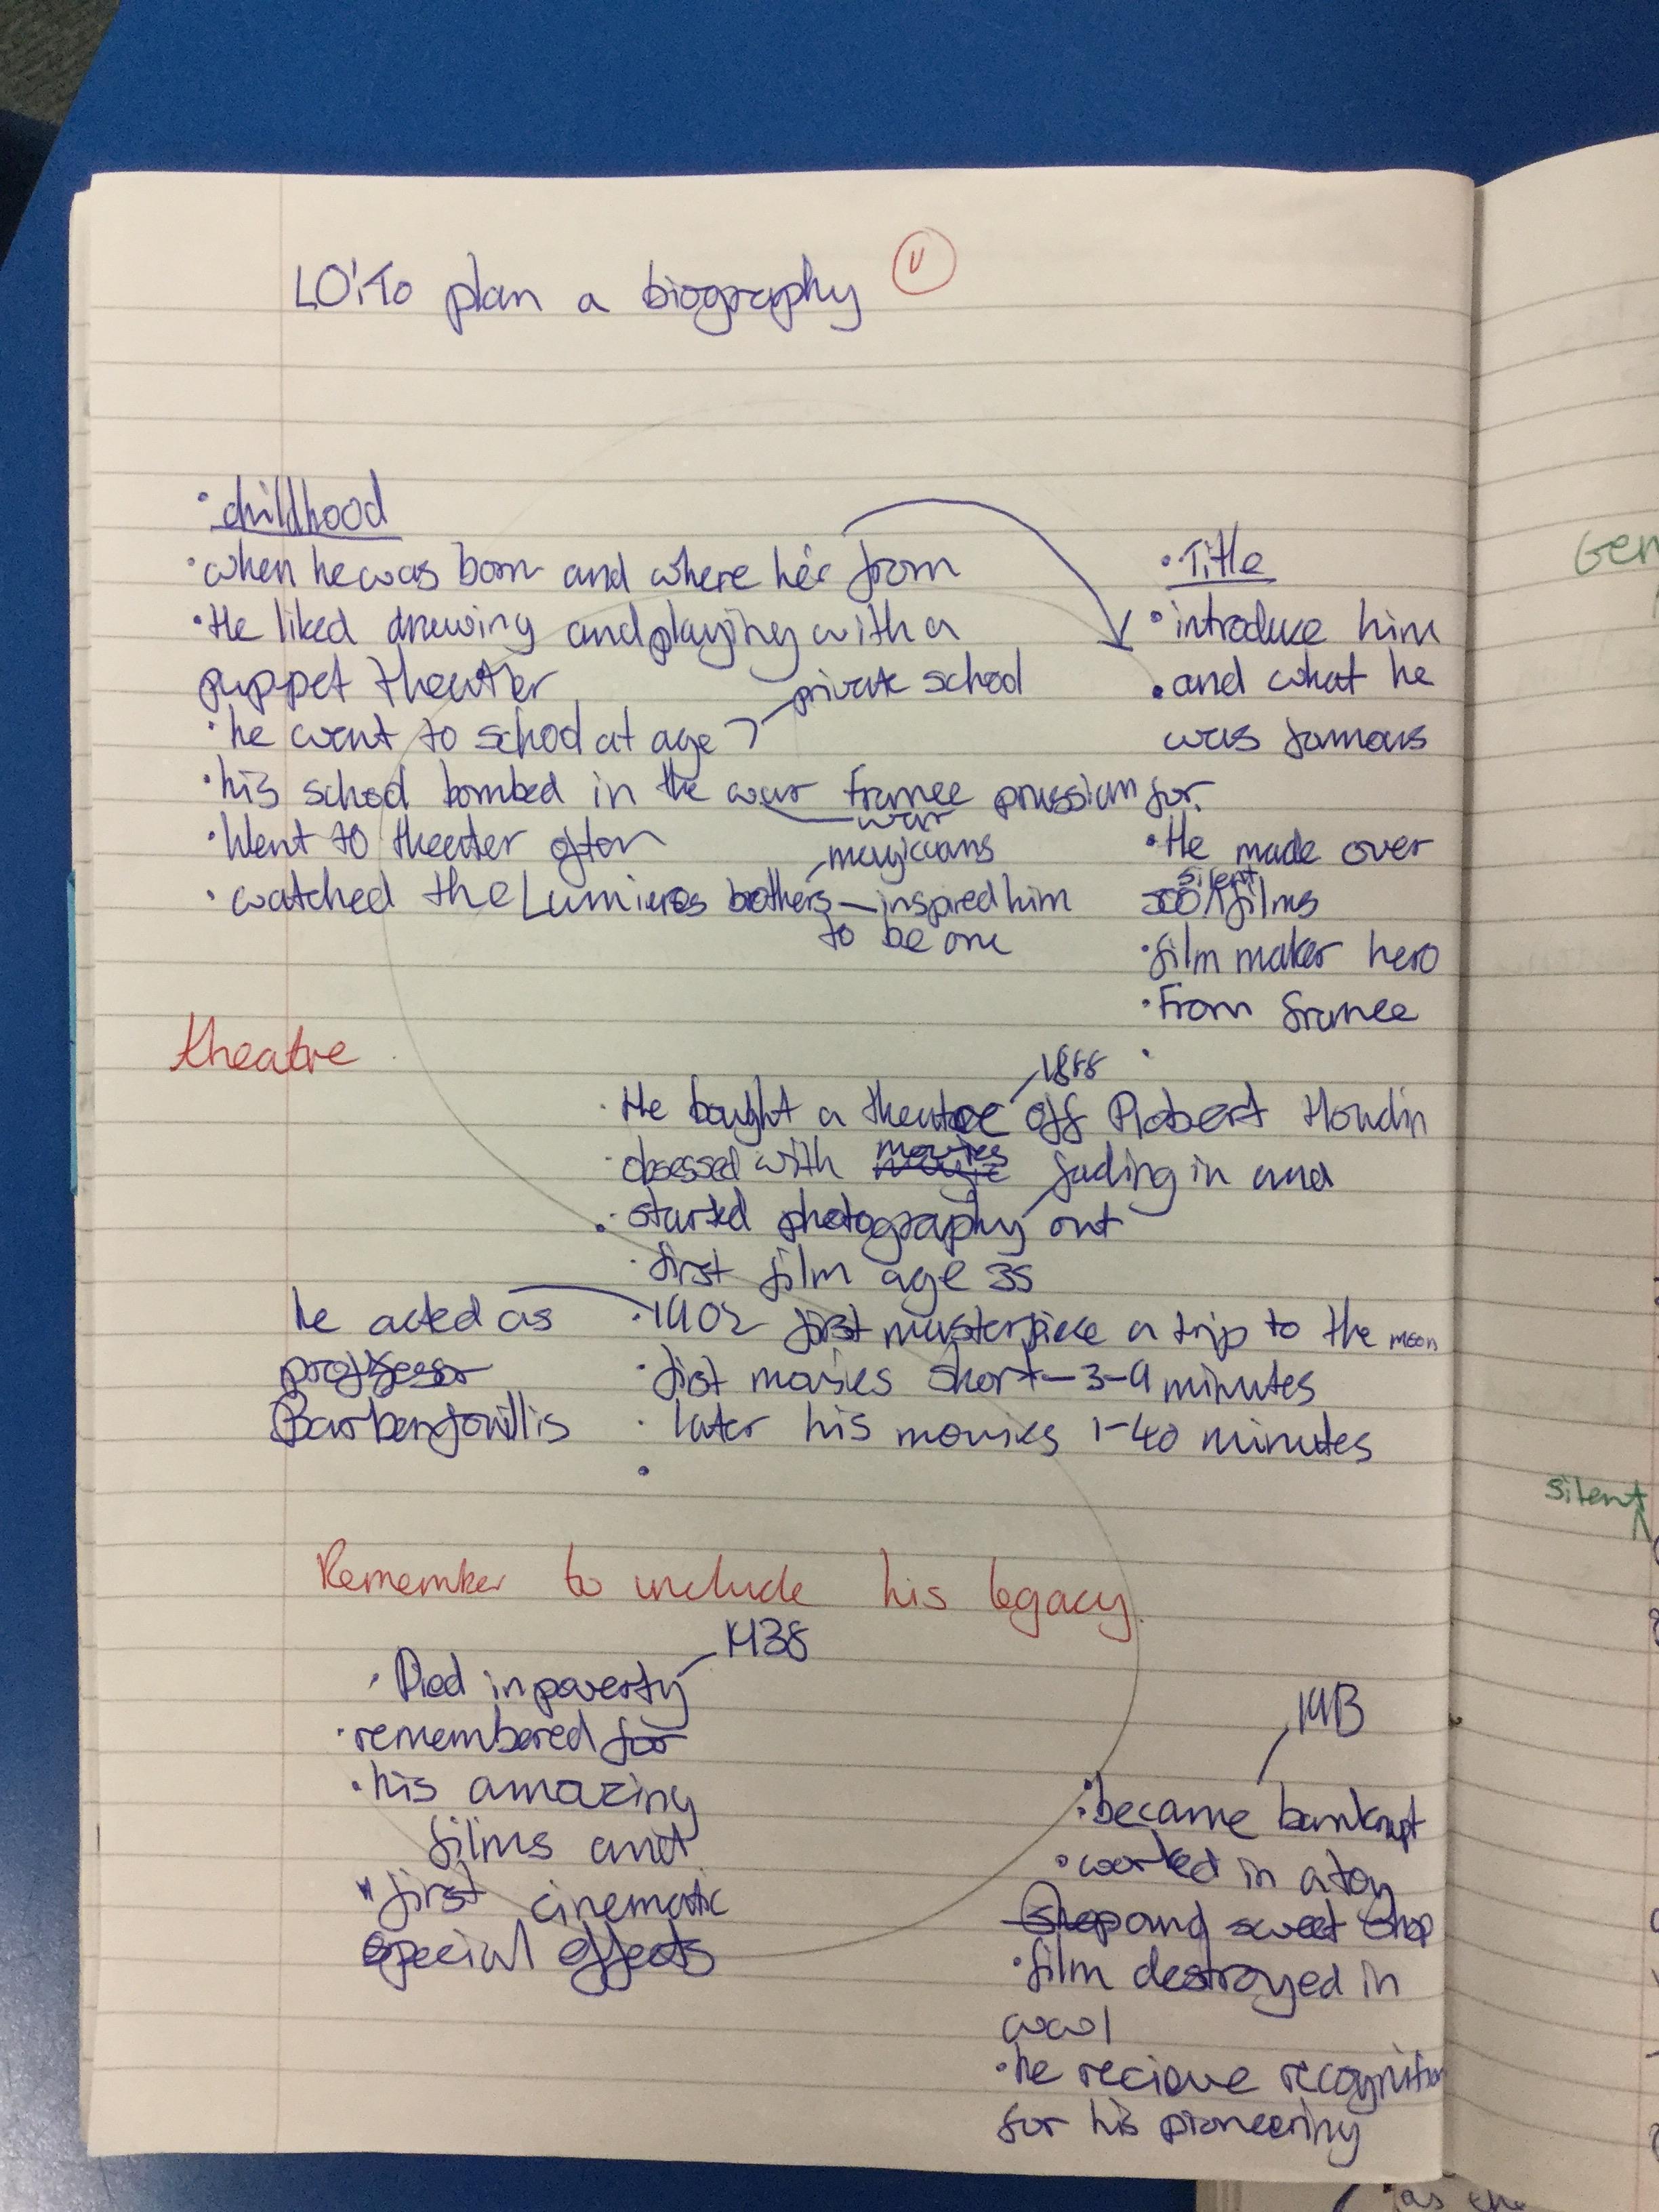 LO: To plan a biography
• childhood
• when he was born and where he's from
• He liked drawing and playing with a
puppet theater
private school
• he want to school at age 7
• his school bombed in the war France prussian
war
• Went to theater often
magicians
• watched the Lumieres brothers – inspired him
to be one
• Title
• introduce him
• and what he
was famous
for.
• He made over
silent
500 films
• film maker hero
• From france
theatre
1888
• He bought a theatre off Robert Houdin
• obsessed with movies
fading in and
out
• started photography
• first film age 35
he acted as
proffesor
Barbenfouillis
• 1902 first masterpiece a trip to the moon
• fist movies short – 3-9 minutes
• later his movies 1-40 minutes
Remember to include his legacy.
1938
• Died in poverty
• remembered for
• his amazing
films and
• first cinematic
special effects
1913
• became bankrupt
• worked in a toy
shop and sweet shop
• film destroyed in
ww1
• he recieve recognition
for his pioneering
Gen
silent
as the